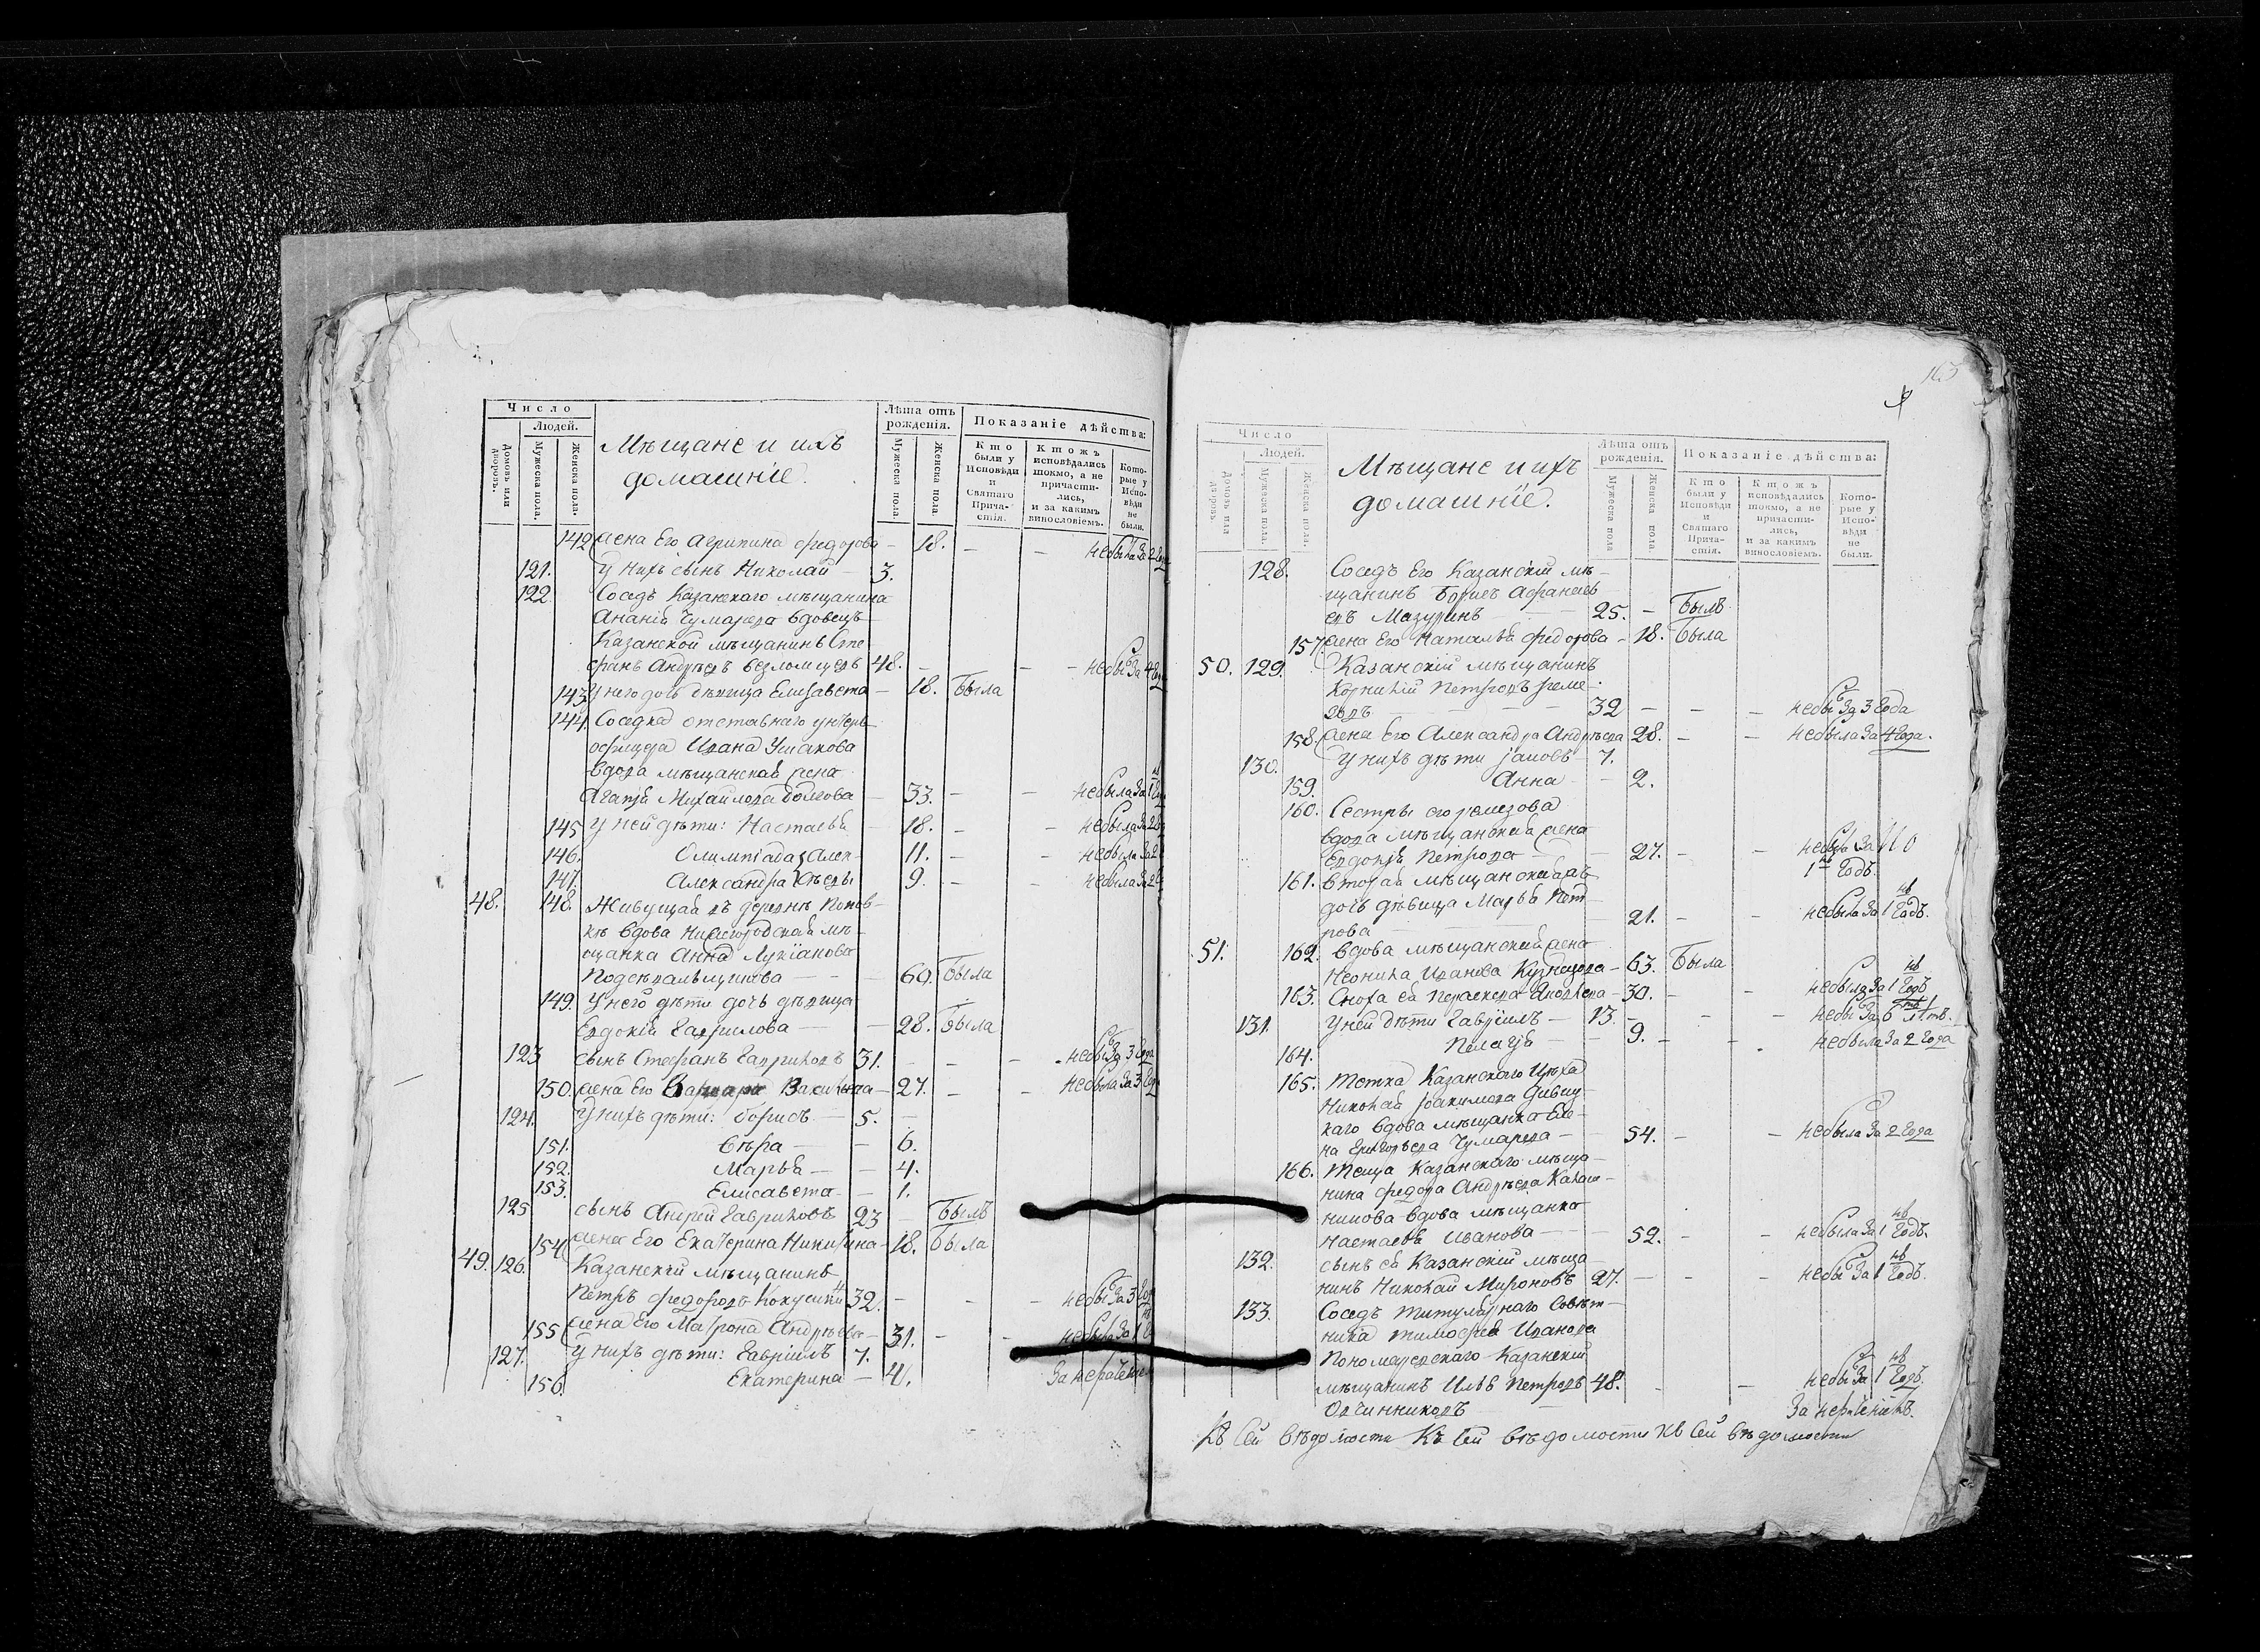 Число
Людей.
Домовъ или дворовъ.
Мужеска пола.
Женска пола.
Мѣщане и ихъ
домашніе.
Лѣта отъ
рожденія.
Мужеска пола.
Женска пола.
Показаніе дѣйства:
Кто были у Исповѣди и Святаго Прича-стія.
Ктожъ исповѣдались токмо, а не причасти-лись, и за какимъ винословіемъ.
Кото-рые у Испо-вѣди не были.
142. жена его Агрипина Федорова — 18. — — небыла за 2 года
121. У нихъ сынъ Николай — 3.
122. Соседъ Казанскаго мѣщанина
Ананія Чумарева вдовецъ
Казанской мѣщанинъ Сте
фанъ Андреевъ 48. — — небы за 4 года
143. У него дочь дѣвица Елисавета — 18. Была
144. Соседка отставнаго унтеръ
офицера Ивана Ушакова
вдова мѣщанская жена
Агапія Михайлова Волгова — 33. — — небыла за 1
145. У ней дѣти: Настасья — 18. — — небыла за 2
146. Олимпіада — 11. — — небыла за 2
147. Александра — 9. — — небыла за 2
48. 148. Живущая въ деревнѣ Попов-
кѣ вдова Нижегородская мѣ-
щанка Анна Лукіанова
— 60. Была
149. У него дѣти дочь дѣвица
Евдокія Гаврилова — 28. Была
123. сынъ Стефанъ Гавриловъ 31. — — небы за 3 года
150. жена его Варвара Васильева — 27. — — небыла за 3 года
124. У нихъ дѣти: Борисъ — 5. —
151. Вѣра — — 6.
152. Марья — — 4.
153. Елисавета — — 1.
125. сынъ Андрей Гавриловъ 23 — Былъ
154. жена его Екатерина Никитина — 18. Была
49. 126. Казанскій мѣщанинъ
Петръ Федоровъ Кокушкинъ 32. — — — небы за 3 года
155. жена его Матрона Андрѣева — 31. — — небыла за 1
127. У нихъ дѣти: Гавріилъ 7.
156. Екатерина — 4. За нераченіемъ
165
Число
Людей.
Домовъ или дворовъ
Мужеска пола.
Женска пола.
Мѣщане и ихъ
домашніе.
Лѣта отъ
рожденія.
Мужеска пола
Женска пола.
Показаніе дѣйства:
Кто были у Исповѣди и Святаго Прича-стія.
Ктожъ исповѣдались токмо, а не причасти-лись, и за какимъ винословіемъ.
Кото-рые у Испо-вѣди не были.
128. Соседъ его Казанскій мѣ-
щанинъ Борисъ Афанасье
въ Мазуринъ — 25. — Былъ
157. жена его Наталья Федорова — 18. Была
50. 129. Казанскій мѣщанинъ
Корнилій Петровъ Реме-
32 — — — небы за 3 года
158. жена его Александра Андрѣева 28. — — небыла за 4 года.
130. У нихъ дѣти Іаковъ — 7.
159. Анна — — 2.
160. Сестры его
вдова мѣщанская жена
Евдокія Петрова — — 27. — — небыла за
1 годъ.
161. Вторая мѣщанская
дочь дѣвица Марья Пет
рова — 21. — — небыла за 1 годъ.
51. 162. вдова мѣщанская жена
Неонила Иванова Кузнецова — 63. Была
163. Сноха ея Параскева Андрѣева — 30. — — небыла за 1 годъ
131. У ней дѣти Гавріилъ — 13. — — — небы за 6 лѣтъ.
164. Пелагія — — 9. — — небыла за 2 года
165. Тетка Казанскаго Цеха
Николая Іоакимова
каго вдова мѣщанка Еле-
на Григорьева Чумарева — — 54. — — небыла за 2 года
166. Теща Казанскаго мѣща-
нина Федора Андрѣева
никова вдова мѣщанка
Настасья Иванова — 52. — — небыла за 1 годъ.
132. сынъ ея Казанскій мѣща
нинъ Николай Мироновъ 27. — — — небы за 1 годъ.
133. Соседъ Титулярнаго Совѣт-
ника Тимофея Иванова
Пономаревскаго Казанскій
мѣщанинъ Илья Петровъ 48. — — небы за 1 годъ.
Овчинниковъ За нераченіемъ.
Къ сей вѣдомости Къ сей вѣдомости Къ сей вѣдомости